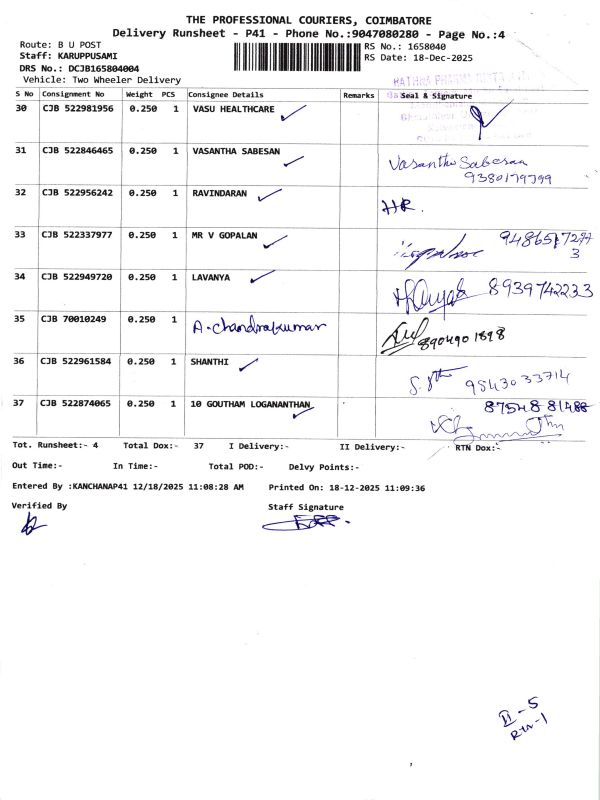 THE PROFESSIONAL COURIERS, COIMBATORE
Delivery Runsheet - P41 - Phone No.:9047080280 - Page No.:4
Route: B U POST
RS No.: 1658040
Staff: KARUPPUSAMI
RS Date: 18-Dec-2025
DRS No.: DCJB165804004
Vehicle: Two Wheeler Delivery
S No Consignment No Weight PCS Consignee Details Remarks Seal & Signature
30 CJB 522981956 0.250 1 VASU HEALTHCARE
31 CJB 522846465 0.250 1 VASANTHA SABESAN Vasantha Sabesan
9380179799
32 CJB 522956242 0.250 1 RAVINDARAN HR.
33 CJB 522337977 0.250 1 MR V GOPALAN
34 CJB 522949720 0.250 1 LAVANYA 8939742233
35 CJB 70010249 0.250 1 A. Chandrakumar 8904901898
36 CJB 522961584 0.250 1 SHANTHI 9543033714
37 CJB 522874065 0.250 1 10 GOUTHAM LOGANANTHAN 87548 81488
Tot. Runsheet:- 4 Total Dox:- 37 I Delivery:- II Delivery:- RTN Dox:-
Out Time:- In Time:- Total POD:- Delvy Points:-
Entered By :KANCHANAP41 12/18/2025 11:08:28 AM Printed On: 18-12-2025 11:09:36
Verified By Staff Signature
II - 5
RTN-1